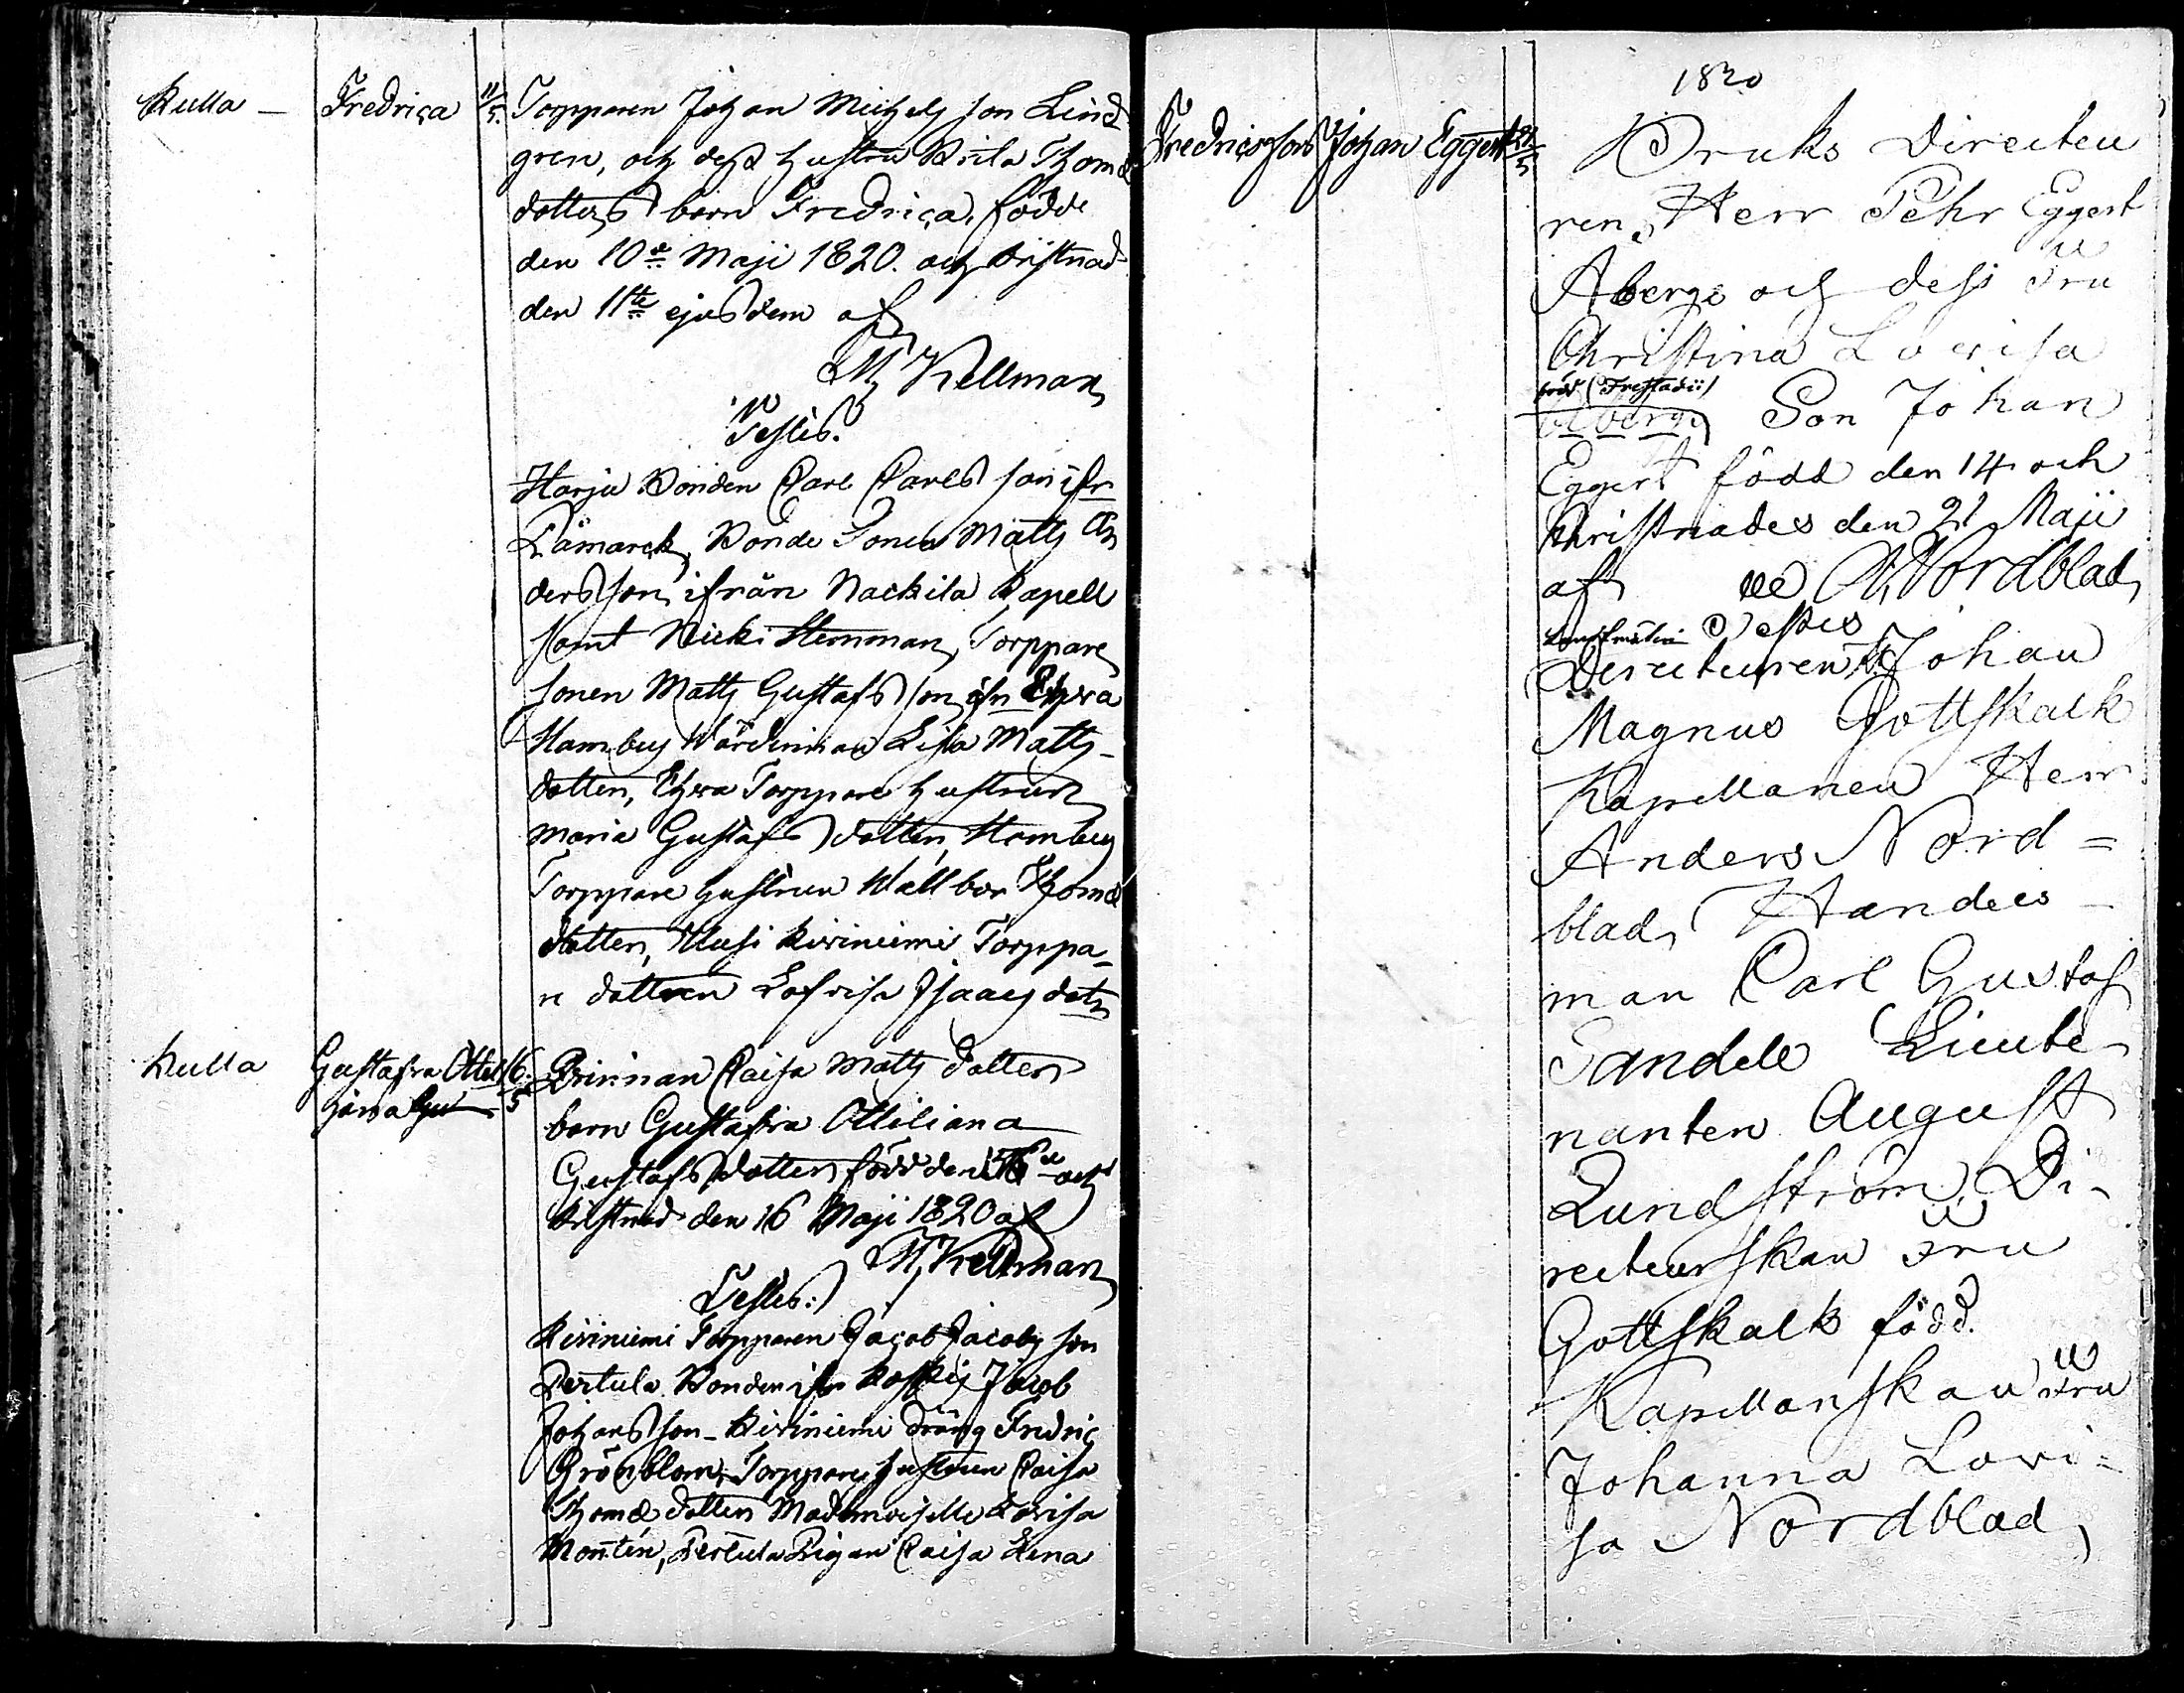 Kulla — Fredrica 11/5. Torpparen Johan Michels son Lind-
gren, och dess hustru Brita Thomæ
dotters barn Fredrica, födde
den 10de Maji 1820. och kristnad
den 11te ejusdem af
M Kellman
Testes.
Harju Bonden Carl Carls son ifr
Lämarck, Bonde Sonen Matts An
ders son, ifrån Nackila Kapell
samt Stemman, Torppare
sonen Matts Gustafs son ifn
Lisa Matts-
dotter, Torppare hustrun
Maria Gustafs dotter,
Torppare hustrun Wallbor Thomæ
dotter, Uusi Kiriniemi Torppa-
re dottren Lovisa Isaacs dotr
Kulla Gustafva Ottel 16/5 Qvinnan Caisa Matts dotters
jana barn Gustafva Ottiliana
Gustafs dotter född den och
kristnad den 16 Maji 1820 af
M. Kellman
Testes:
Kiriniemi Torpparen Jacob Jacobs son
Pertula Bonden ifr Jacob
Johans son - Kiriniemi dräng Fredric
Grönblom, Torppare hustrun Caisa
Thomæ dotter Mademoiselle Lovisa
Montin, Pertula Pigan Caisa Lena
1820
Fredricsfors Johan Eggert 21/5 Bruks Directeu
ren, Herr Pehr Eggert
Åberg och dess Fru
Christina Lovisa
född (Frestadii)
Åberg Son Johan
Eggert född den 14 och
Christnades den 21 Maji
af A. Nordblad
Testes
Directeuren Johan
Magnus Gottskalk
Kapellanen Herr
Anders Nord=
blad, Handels-
man Carl Gustaf
Sandell Lieute-
nanten August
Lundström, Di-
recteurskan Fru
Gottskalk född.
Kapellanskan Fru
Johanna Lovi-
sa Nordblad,